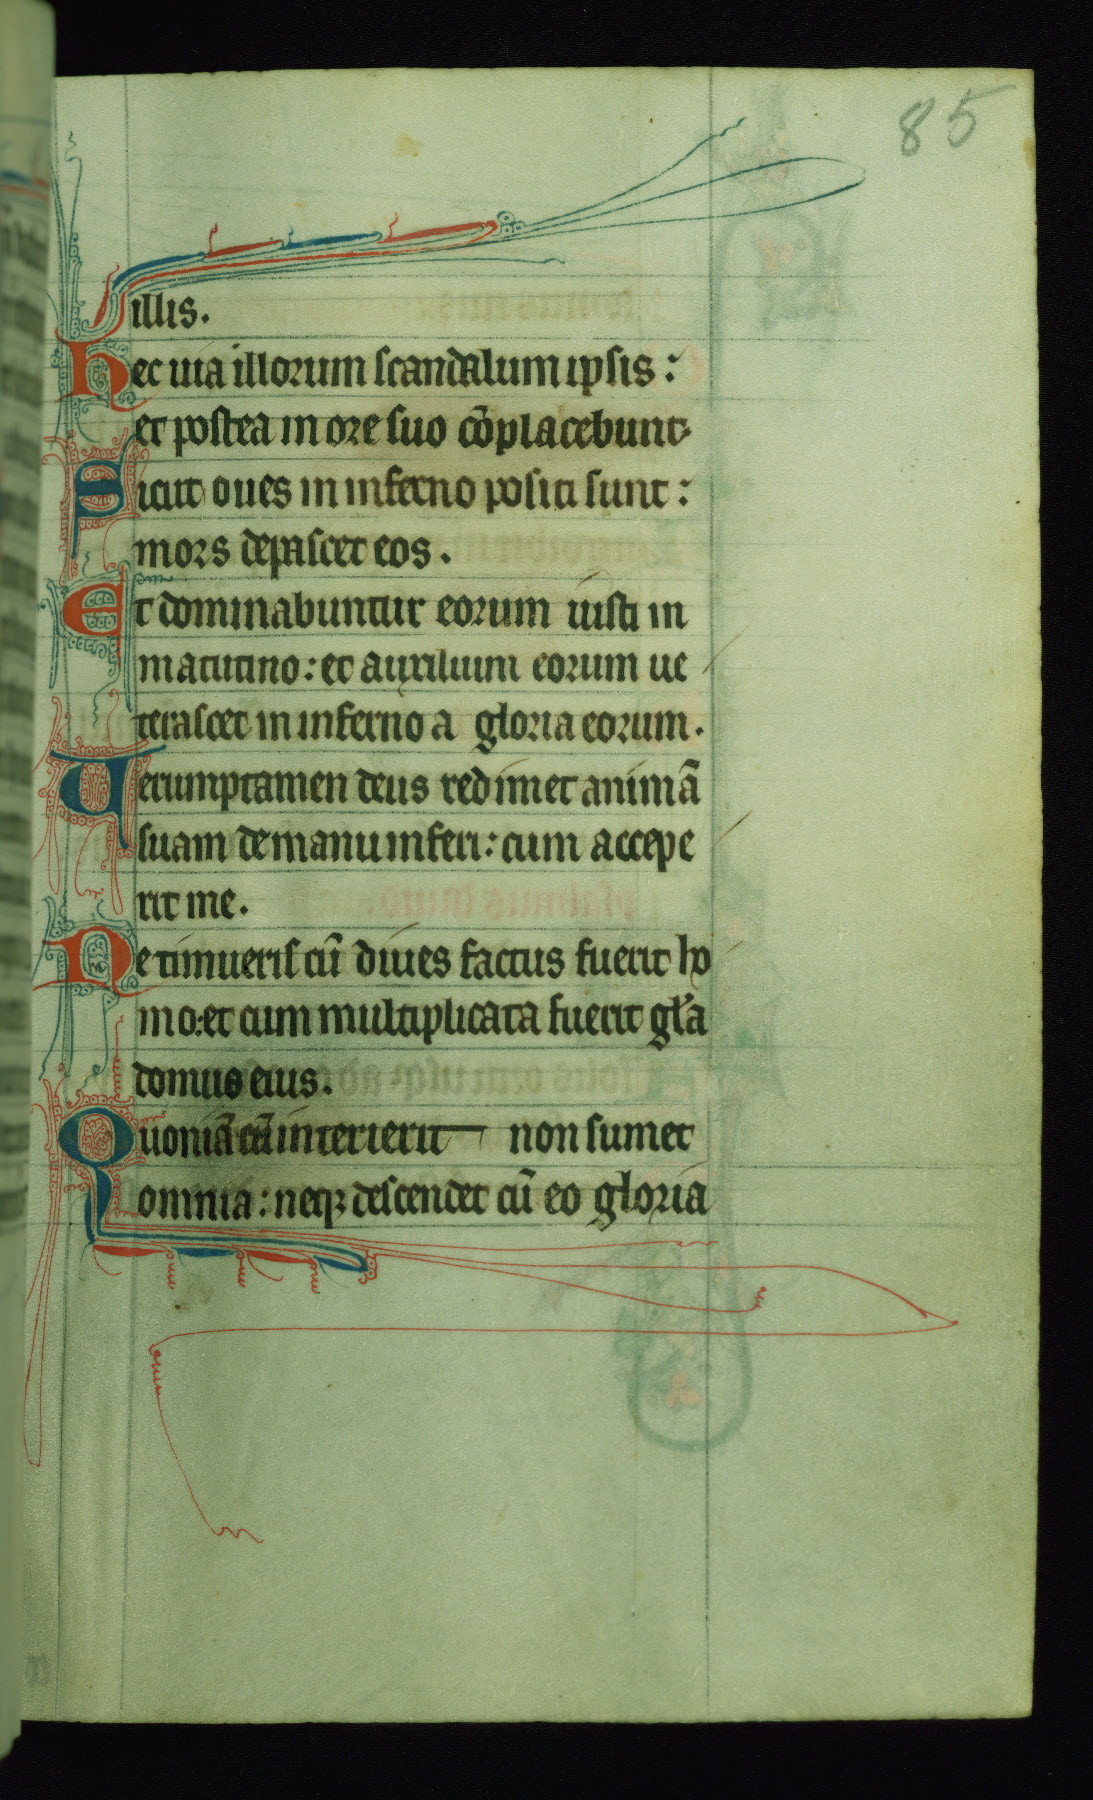 85
illis.
Hec uia illorum scandalum ipsis:
et postea in ore suo cō placebunt.
Sicut oues in inferno positi sunt:
mors depascet eos.
Et dominabuntur eorum iusti in
matutino: et auxilium eorum ue
terascet in inferno a gloria eorum.
Uerumptamen deus redimet animā
suam de manu inferi: cum accepe
rit me.
Ne timueris cū diues factus fuerit ho
mo: et cum multiplicata fuerit gl̄a
domus eius.
Quoniā cū interierit non sumet
omnia: neqꝫ descendet cū eo gloria